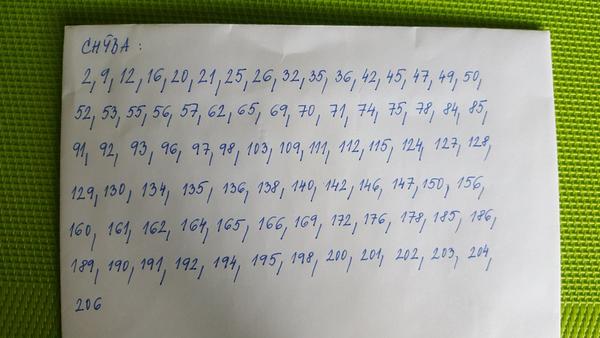 CHÝBA :
2, 9, 12, 16, 20, 21, 25, 26, 32, 35, 36, 42, 45, 47, 49, 50,
52, 53, 55, 56, 57, 62, 65, 69, 70, 71, 74, 75, 78, 84, 85,
91, 92, 93, 96, 97, 98, 103, 109, 111, 112, 115, 124, 127, 128,
129, 130, 134, 135, 136, 138, 140, 142, 146, 147, 150, 156,
160, 161, 162, 164, 165, 166, 169, 172, 176, 178, 185, 186,
189, 190, 191, 192, 194, 195, 198, 200, 201, 202, 203, 204,
206